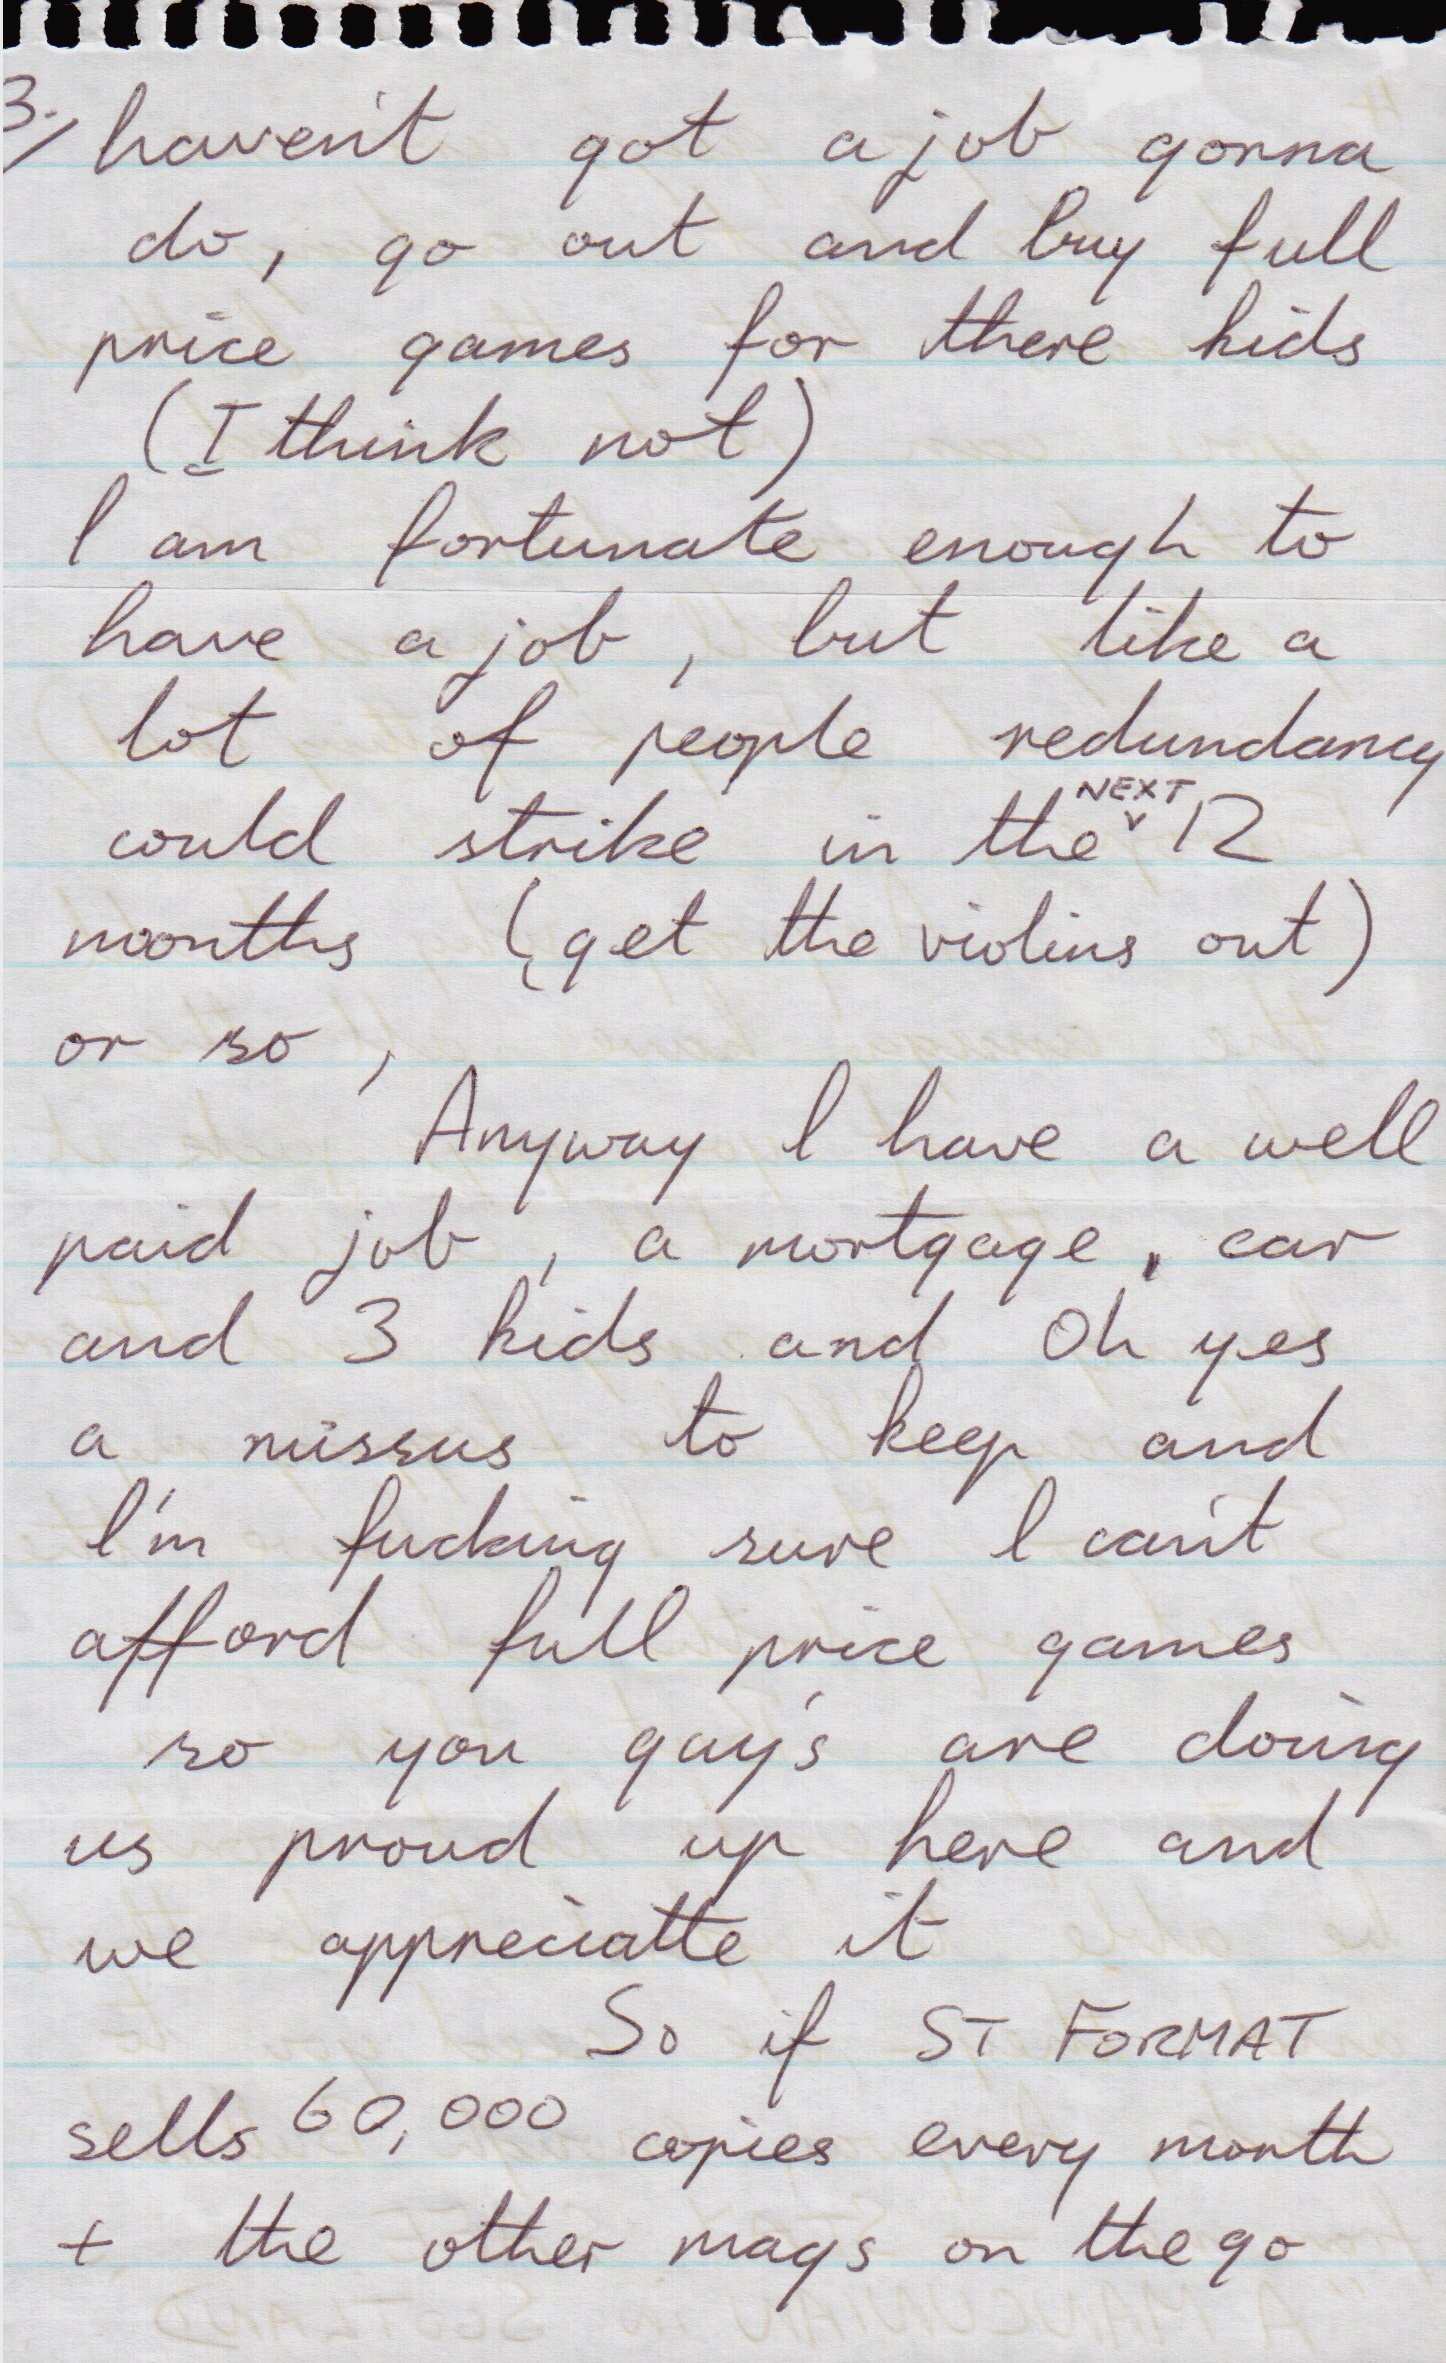 3./ haven't got a job gonna
do, go out and buy full
price games for there kids
(I think not)
I am fortunate enough to
have a job, but like a
lot of people redundancy
could strike in the NEXT 12
months (get the violins out)
or so,
Anyway I have a well
paid job, a mortgage, car
and 3 kids and Oh yes
a missus to keep and
I'm fucking sure I can't
afford full price games
so you guy's are doing
us proud up here and
we appreciatte it
So if ST FORMAT
sells 60,000 copies every month
+ the other mags on the go